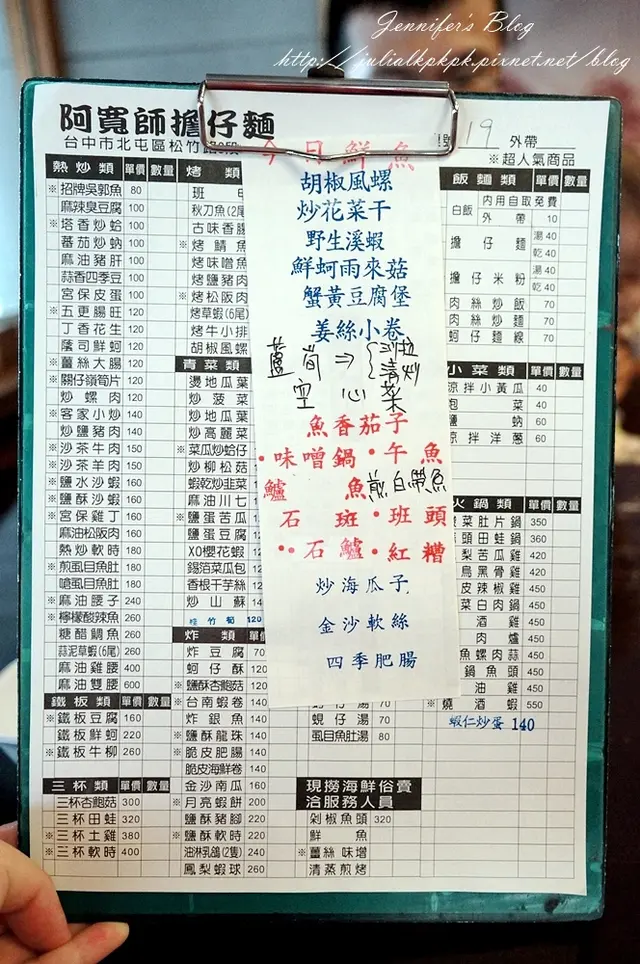 Jennifer's Blog
http://julialkpkpk.pixnet.net/blog
阿寬師擔仔麵
台中市北屯區松竹路
19 外帶
※超人氣商品
熱炒類 單價 數量
※招牌吳郭魚 80
麻辣臭豆腐 100
※塔香炒蛤 100
蕃茄炒蚋 100
麻油豬肝 100
蒜香四季豆 100
宮保皮蛋 100
※五更腸旺 120
丁香花生 120
蔭司鮮蚵 120
※薑絲大腸 120
※關仔嶺筍片 120
炒螺肉 120
※客家小炒 140
炒鹽豬肉 140
※沙茶牛肉 150
※沙茶羊肉 150
※鹽水沙蝦 160
※鹽酥沙蝦 160
※宮保雞丁 160
麻油松阪肉 160
熱炒軟時 180
※煎虱目魚肚 180
嗆虱目魚肚 180
※麻油腰子 240
※檸檬酸辣魚 260
糖醋鯛魚 260
蒜泥草蝦(6尾) 260
麻油雞腰 400
麻油雙腰 600
鐵板類 單價 數量
※鐵板豆腐 160
※鐵板鮮蚵 220
※鐵板牛柳 260
三杯類 單價 數量
三杯杏鮑菇 300
三杯田蛙 320
※三杯土雞 380
※三杯軟時 400
烤類
秋刀魚(2尾
古味香腸
※烤鯖魚
烤味噌魚
烤鹽豬肉
※烤松阪肉
烤草蝦(6尾)
烤牛小排
胡椒風螺
青菜類
燙地瓜葉
炒菠菜
炒地瓜葉
炒高麗菜
※菜瓜炒蛤仔
炒柳松菇
蝦乾炒韭菜
麻油川七
※鹽蛋苦瓜
鹽蛋豆腐
XO櫻花蝦
錫箔菜瓜包
香根干芋絲
炒山蘇
桂竹筍 120
炸類
炸豆腐 70
蚵仔酥 120
※鹽酥杏鮑菇 120
※台南蝦卷 140
炸銀魚 140
※鹽酥龍珠 140
※脆皮肥腸 140
脆皮海鮮卷 140
金沙南瓜 160
※月亮蝦餅 200
鹽酥豬腳 220
※鹽酥軟時 220
油淋乳鴿(2隻) 240
鳳梨蝦球 260
今日鮮魚
胡椒風螺
炒花菜干
野生溪蝦
鮮蚵雨來菇
蟹黃豆腐堡
姜絲小卷
蘆筍⇒{沙拉
清炒
空心菜
魚香茄子
•味噌鍋•午魚
鱸魚煎白帶魚
石斑•班頭
••石鱸•紅糟
炒海瓜子
金沙軟絲
四季肥腸
蜆仔湯 70
虱目魚肚湯 80
現撈海鮮俗賣
洽服務人員
剁椒魚頭 320
鮮魚
※薑絲味增
清蒸煎烤
飯麵類 單價 數量
白飯 內用自取免費
外帶 10
擔仔麵 湯40
乾40
擔仔米粉 湯40
乾40
肉絲炒飯 70
肉絲炒麵 70
蚵仔麵線 70
小菜類 單價 數量
涼拌小黃瓜 40
菜 40
蚋 60
涼拌洋蔥 60
火鍋類 單價 數量
酸菜肚片鍋 350
頭田蛙鍋 360
梨苦瓜雞 420
烏黑骨雞 420
皮辣椒雞 450
菜白肉鍋 450
酒雞 450
肉爐 450
魚螺肉蒜 450
鍋魚頭 450
油雞 450
※燒酒蝦 550
蝦仁炒蛋 140